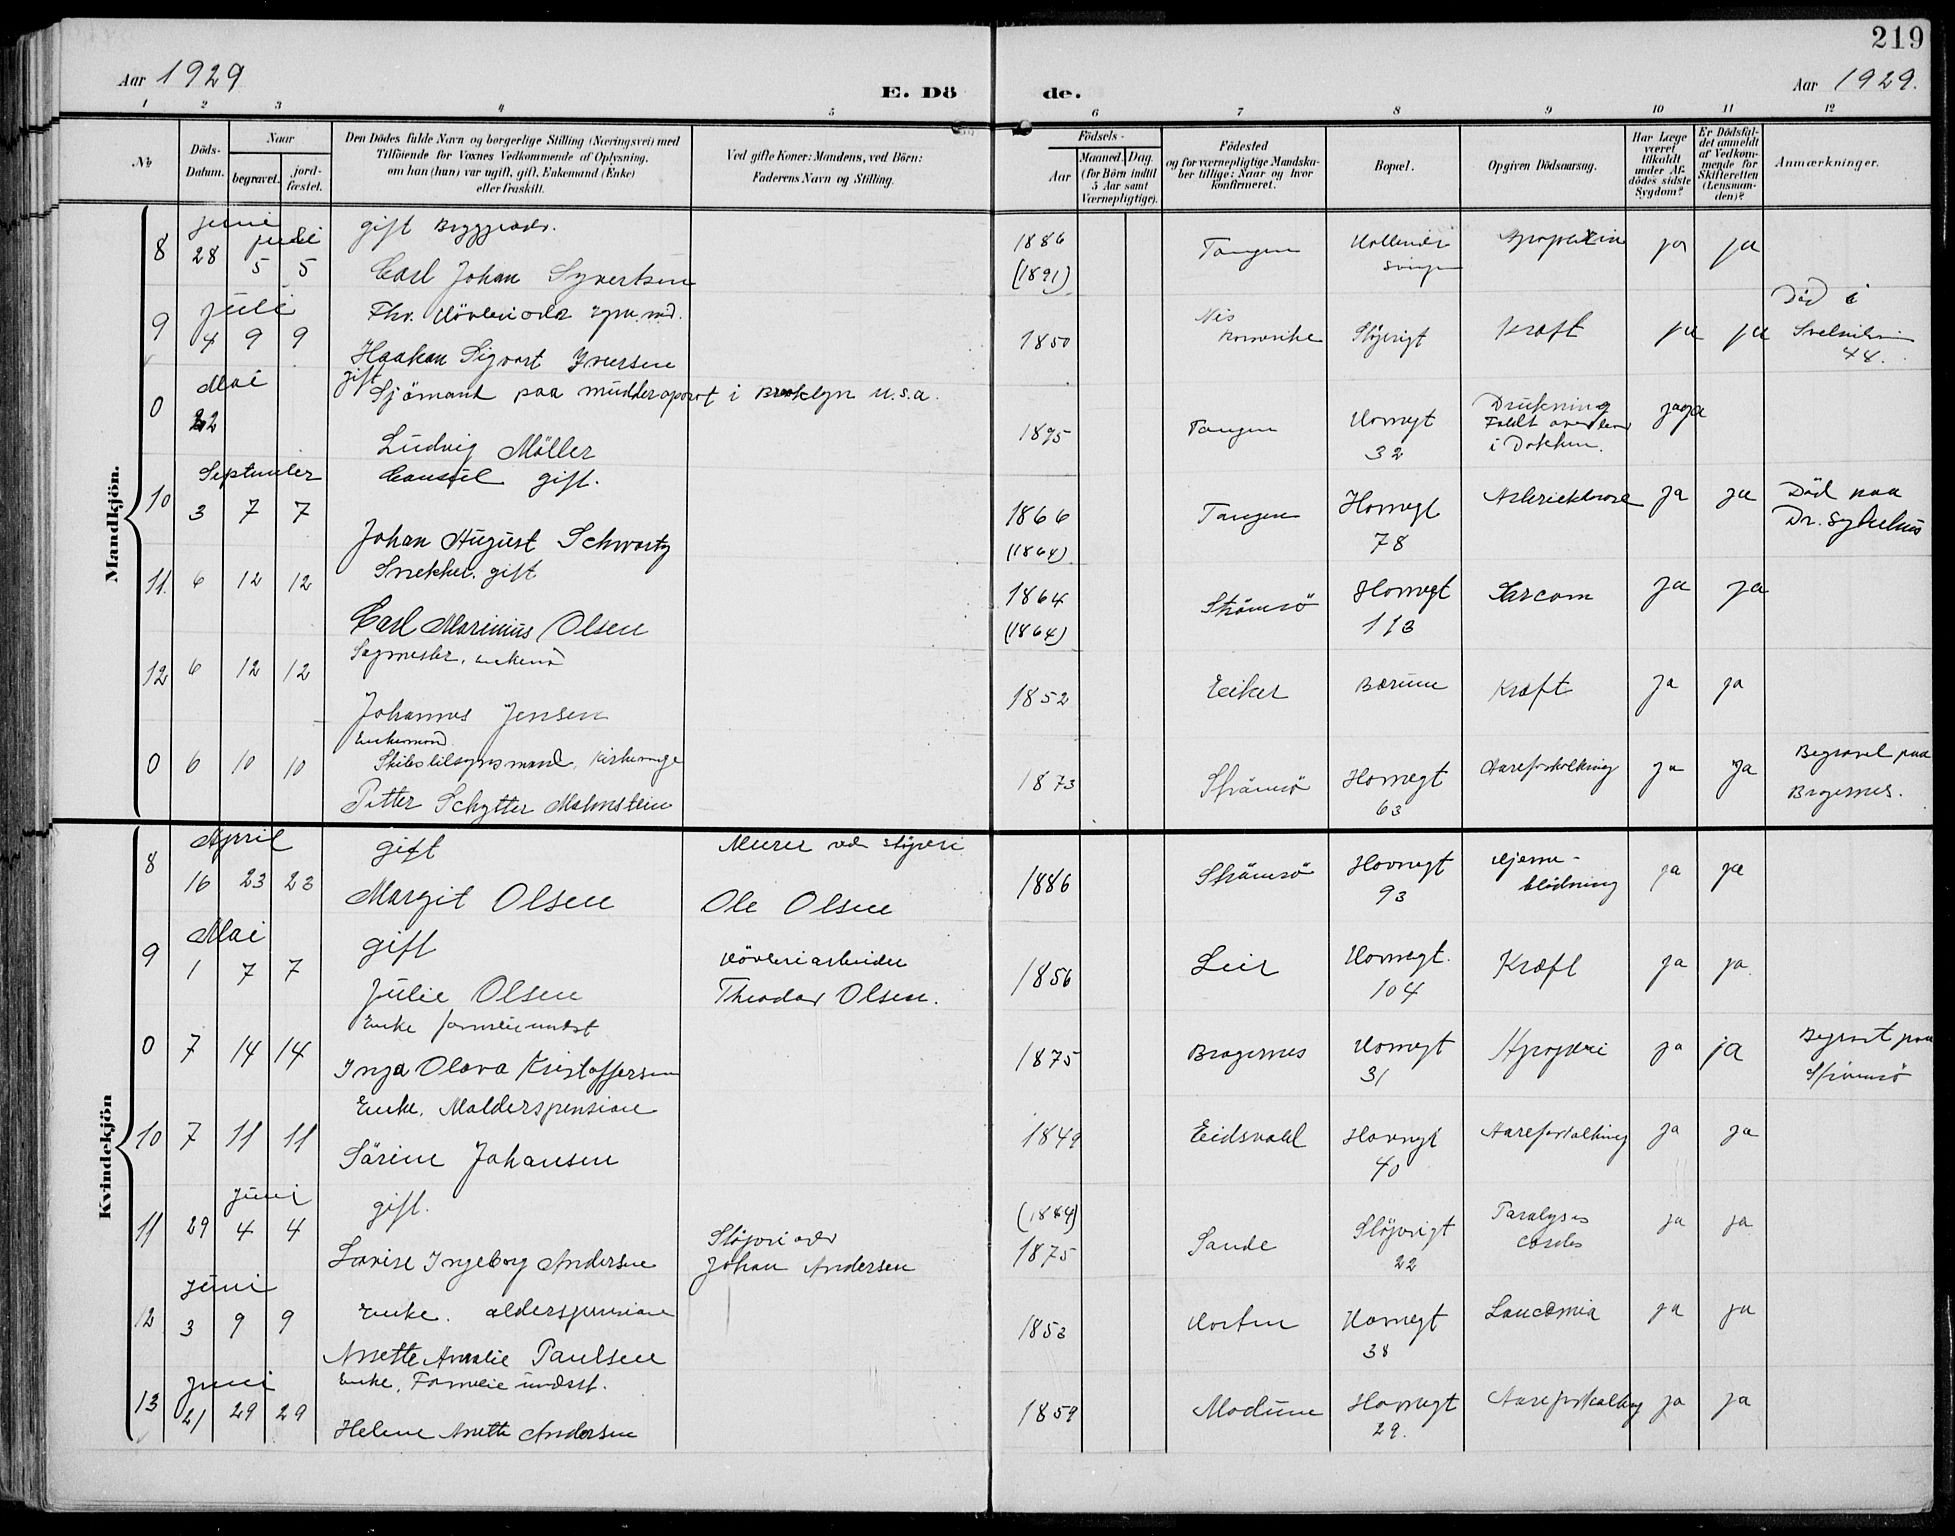 219
Aar 1929
E. Dö de.
Aar 1929.
1 2 3 4 5 6 7 8 9 10 11 12
No
Döds-
Datum.
Naar
begravet.
jord-
fæstet.
Den Dödes fulde Navn og borgerlige Stilling (Næringsvei) med
Tilföiende for Voxnes Vedkommende af Oplysning,
om han (hun) var ugift, gift, Enkemand (Enke)
eller fraskilt.
Ved gifte Koner: Mandens, ved Börn:
Faderens Navn og Stilling.
Födsels-
Aar
Maaned. Dag.
(for Börn indtil
5 Aar samt
Værnepligtige).
Födested
og for værnepligtige Mandska-
ber tillige: Naar og hvor
konfirmeret.
Bopæl.
Opgiven Dödsaarsag.
Har Læge
været
tilkaldt
under Af-
dödes sidste
Sygdom?
Er Dödsfal-
det anmeldt
af Vedkom-
mende for
Skifteretten
(Lensman-
den)?
Anmærkninger.
Mandkjön.
juni juli gift
8 28 5 5 Carl Johan Syvertsen 1886 (1891) Tangen ja ja
juli
9 4 9 9 Haakon Sigvart Iversen 1850 Kræft ja ja Död i
44.
Mai gift Sjömand paa mudderaparat i Brooklyn U.S.A.
0 22 Ludvig Möller 1895 Tangen Havnegt 32 Drukning
i Dokken. ja ja
September Consul gift.
10 3 7 7 Johan August Schwartz 1866 (1864) Tangen Havnegt 78 ja ja Död paa
Dr. Sykehus
Snekker. gift
11. 6 12 12 Carl Marinius Olsen 1864 (1864) Strömsö Havnegt 113 Sarcom ja ja
Sagmester, enkem
12 6 12 12 Johannes Jensen 1852 Eiker Bærum Kræft ja ja
Enkemand
Skibstilsynsmand, Kirkeverge
0 6 10 10 Petter Schytter Malmstein 1873 Strömsö Havnegt 63 Aareforkalkning ja ja Begravet paa
Bragernes.
Kvindekjön
April gift Murer ved stöperi
8 16 23 23 Margit Olsen Ole Olsen 1886 Strömsö Havnegt 93 Hjerne-
blödning ja ja
Mai gift Hövleriarbeider
9 1 7 7 Julie Olsen Theodor Olsen. 1856 Lier Havnegt. 104 Kræft ja ja
Enke
0 7 14 14 Inga Olava Kristoffersen 1875 Bragernes Havnegt 31 Apoplexi ja ja Begravet paa
Strömsö
Enke. Alderspension
10 7 11 11 Sörine Johansen 1849 Eidsvold Havnegt 40 Aareforkalkning ja ja
Juni gift.
11 29 4 4 Lovise Ingeborg Andersen Johan Andersen (1884) 1875 Sande 22 Paralysis
cordis ja ja
Juni Enke. alderspension
12 3 9 9 Anette Amalie Paulsen 1853 Horten Havnegt 38 Leucæmia ja ja
Juni Enke, Familie underst.
13 21 29 29 Helene Anette Andersen 1859 Modum Havnegt 29. Aareforkalkning ja ja